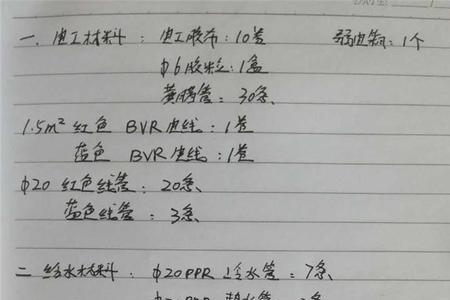 一、电工材料：电工胶布：10卷 弱电箱：1个
φ6胶粒：1盒
黄腊管：30条
1.5m² 红色 BVR电线：1卷
蓝色 BVR电线：1卷
φ20 红色线管：20条
蓝色线管：3条
二 给水材料：φ20PPR 冷水管：7条
热水管：